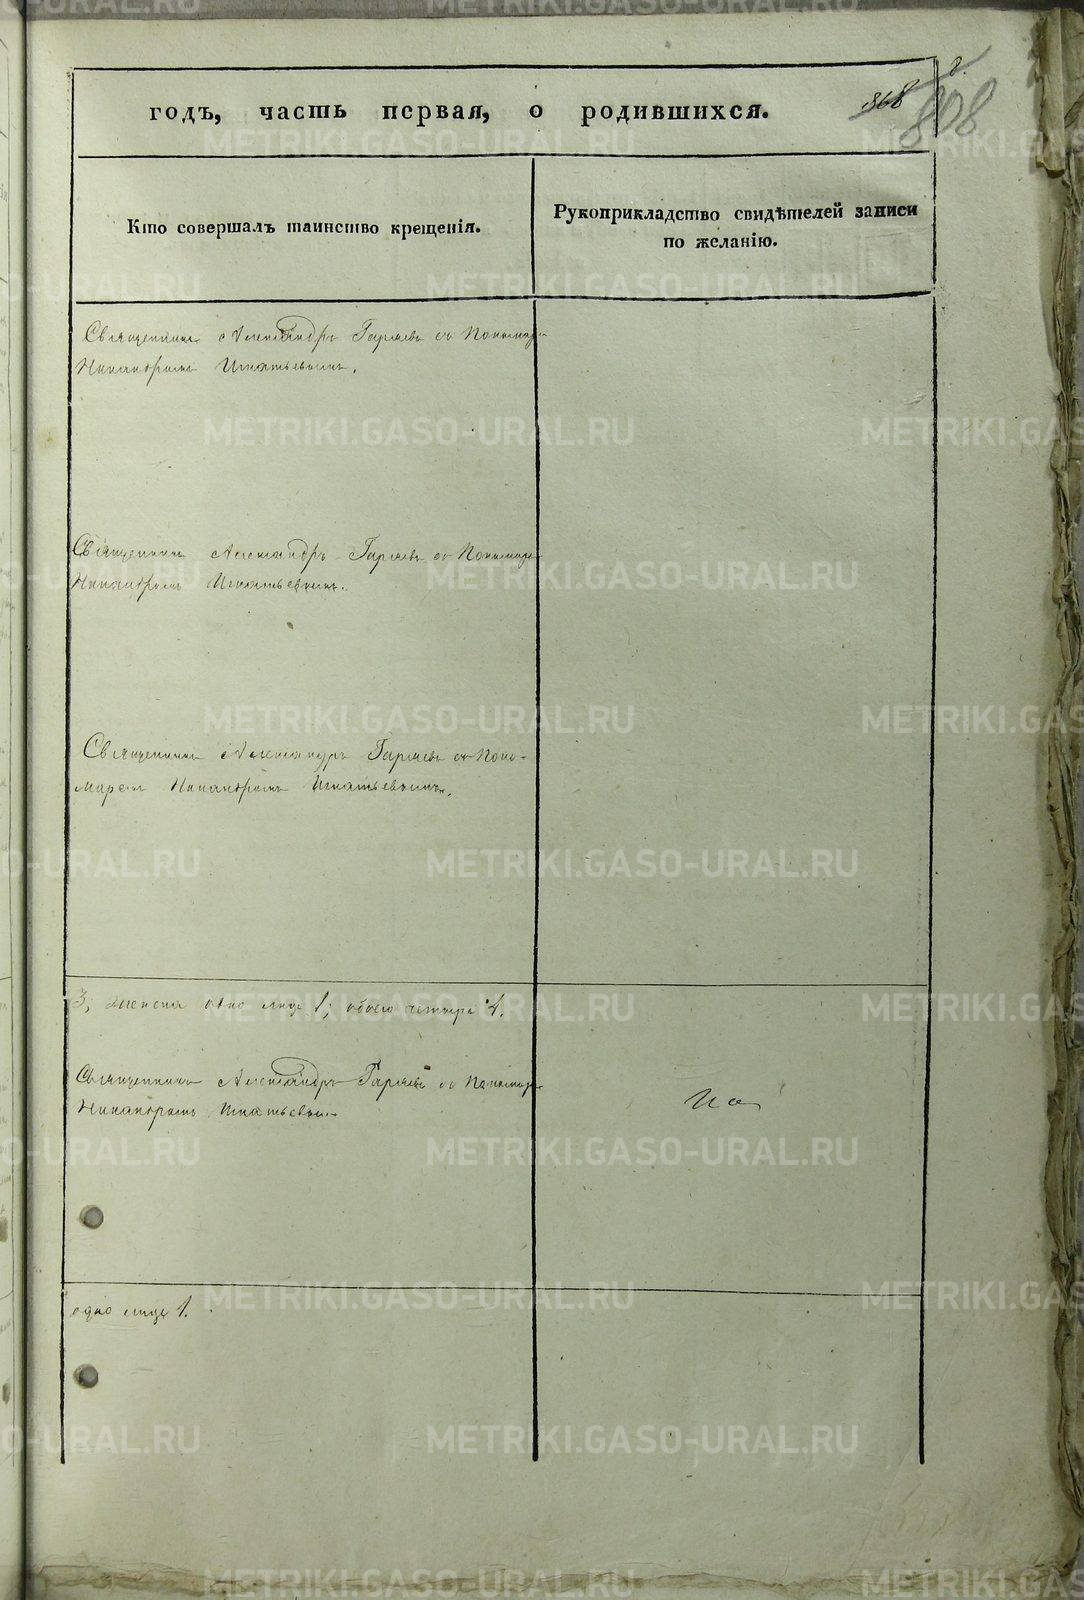 годъ, часть первая, о родившихся.
868
808
Кто совершалъ таинство крещенія.
Рукоприкладство свидѣтелей записи
по желанію.
Священникъ Александръ Гаряевъ съ Пономаре-
Никаноромъ Игнатьевымъ.
Священникъ Александръ Гаряевъ съ Пономаре-
Никаноромъ Игнатьевымъ.
Священникъ Александръ Гаряевъ съ Поно-
маремъ Никаноромъ Игнатьевымъ.
3, женска одно лице 1; обоего четыре 4.
Священникъ Александръ Гаряевъ съ Пономаре-
Никаноромъ Игнатьевы
одно лице 1.
METRIKI.GASO-URAL.RU